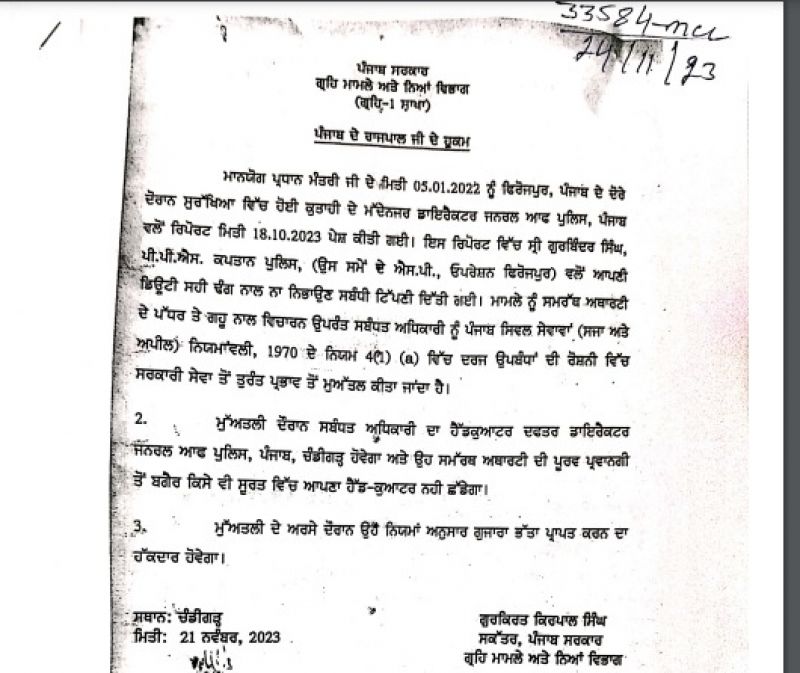 33584-mcc
24/11/23
ਪੰਜਾਬ ਸਰਕਾਰ
ਗ੍ਰਹਿ ਮਾਮਲੇ ਅਤੇ ਨਿਆਂ ਵਿਭਾਗ
(ਗ੍ਰਹਿ-1 ਸ਼ਾਖਾ)
ਪੰਜਾਬ ਦੇ ਰਾਜਪਾਲ ਜੀ ਦੇ ਹੁਕਮ
ਮਾਨਯੋਗ ਪ੍ਰਧਾਨ ਮੰਤਰੀ ਜੀ ਦੇ ਮਿਤੀ 05.01.2022 ਨੂੰ ਫਿਰੋਜਪੁਰ, ਪੰਜਾਬ ਦੇ ਦੌਰੇ
ਦੌਰਾਨ ਸੁਰੱਖਿਆ ਵਿੱਚ ਹੋਈ ਕੁਤਾਹੀ ਦੇ ਮੱਦੇਨਜਰ ਡਾਇਰੈਕਟਰ ਜਨਰਲ ਆਫ ਪੁਲਿਸ, ਪੰਜਾਬ
ਵਲੋਂ ਰਿਪੋਰਟ ਮਿਤੀ 18.10.2023 ਪੇਸ਼ ਕੀਤੀ ਗਈ। ਇਸ ਰਿਪੋਰਟ ਵਿੱਚ ਸ੍ਰੀ ਗੁਰਬਿੰਦਰ ਸਿੰਘ,
ਪੀ.ਪੀ.ਐਸ. ਕਪਤਾਨ ਪੁਲਿਸ, (ਉਸ ਸਮੇਂ ਦੇ ਐਸ.ਪੀ., ਓਪਰੇਸ਼ਨ ਫਿਰੋਜਪੁਰ) ਵਲੋਂ ਆਪਣੀ
ਡਿਊਟੀ ਸਹੀ ਢੰਗ ਨਾਲ ਨਾ ਨਿਭਾਉਣ ਸਬੰਧੀ ਟਿੱਪਣੀ ਦਿੱਤੀ ਗਈ। ਮਾਮਲੇ ਨੂੰ ਸਮਰੱਥ ਅਥਾਰਟੀ
ਦੇ ਪੱਧਰ ਤੇ ਗਹੂ ਨਾਲ ਵਿਚਾਰਨ ਉਪਰੰਤ ਸਬੰਧਤ ਅਧਿਕਾਰੀ ਨੂੰ ਪੰਜਾਬ ਸਿਵਲ ਸੇਵਾਵਾਂ (ਸਜਾ ਅਤੇ
ਅਪੀਲ) ਨਿਯਮਾਂਵਲੀ, 1970 ਦੇ ਨਿਯਮ 4(1) (a) ਵਿੱਚ ਦਰਜ ਉਪਬੰਧਾਂ ਦੀ ਰੋਸ਼ਨੀ ਵਿੱਚ
ਸਰਕਾਰੀ ਸੇਵਾ ਤੋਂ ਤੁਰੰਤ ਪ੍ਰਭਾਵ ਤੋਂ ਮੁਅੱਤਲ ਕੀਤਾ ਜਾਂਦਾ ਹੈ।
2. ਮੁੱਅਤਲੀ ਦੌਰਾਨ ਸਬੰਧਤ ਅਧਿਕਾਰੀ ਦਾ ਹੈੱਡਕੁਆਟਰ ਦਫਤਰ ਡਾਇਰੈਕਟਰ
ਜਨਰਲ ਆਫ ਪੁਲਿਸ, ਪੰਜਾਬ, ਚੰਡੀਗੜ੍ਹ ਹੋਵੇਗਾ ਅਤੇ ਉਹ ਸਮੱਰਥ ਅਥਾਰਟੀ ਦੀ ਪੂਰਵ ਪ੍ਰਵਾਨਗੀ
ਤੋਂ ਬਗੈਰ ਕਿਸੇ ਵੀ ਸੂਰਤ ਵਿੱਚ ਆਪਣਾ ਹੈੱਡ-ਕੁਆਟਰ ਨਹੀ ਛੱਡੇਗਾ।
3. ਮੁੱਅਤਲੀ ਦੇ ਅਰਸੇ ਦੌਰਾਨ ਉਹੋ ਨਿਯਮਾਂ ਅਨੁਸਾਰ ਗੁਜਾਰਾ ਭੱਤਾ ਪ੍ਰਾਪਤ ਕਰਨ ਦਾ
ਹੱਕਦਾਰ ਹੋਵੇਗਾ।
ਸਥਾਨ: ਚੰਡੀਗੜ੍ਹ
ਮਿਤੀ: 21 ਨਵੰਬਰ, 2023
ਗੁਰਕਿਰਤ ਕਿਰਪਾਲ ਸਿੰਘ
ਸਕੱਤਰ, ਪੰਜਾਬ ਸਰਕਾਰ
ਗ੍ਰਹਿ ਮਾਮਲੇ ਅਤੇ ਨਿਆਂ ਵਿਭਾਗ